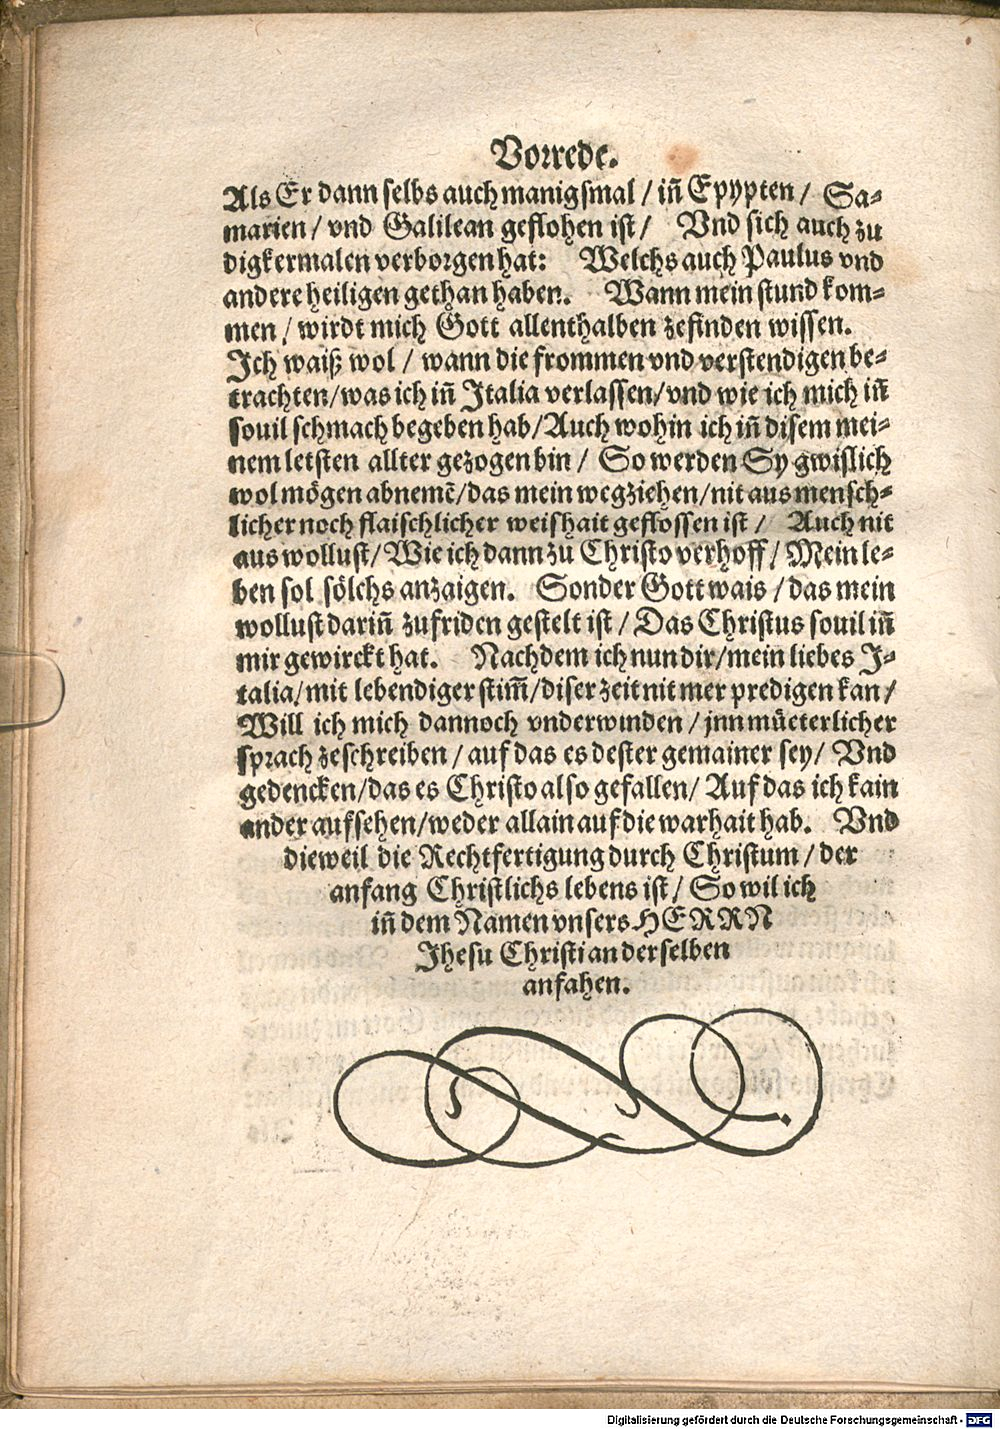 Vorrede.
Als Er dann selbs auch manigsmal / iñ Epypten / Sa-
marien / vnd Galilean geflohen ist / Vnd sich auch zu
digkermalen verborgen hat: Welchs auch Paulus vnd
andere heiligen gethan haben. Wann mein stund kom-
men / wirdt mich Gott allenthalben zefinden wissen.
Ich waiß wol / wann die frommen vnd verstendigen be-
trachten/was ich iñ Italia verlassen/vnd wie ich mich iñ
souil schmach begeben hab/Auch wohin ich iñ disem mei-
nem letsten allter gezogen bin / So werden Sy gwislich
wol mögen abnemẽ/das mein wegziehen/nit aus mensch-
licher noch flaischlicher weishait geflossen ist / Auch nit
aus wollust/Wie ich dann zu Christo verhoff/Mein le-
ben sol sölchs anzaigen. Sonder Gott wais / das mein
wollust dariñ zufriden gestelt ist / Das Christus souil iñ
mir gewirckt hat. Nachdem ich nun dir/mein liebes I-
talia/mit lebendiger stim̃/diser zeit nit mer predigen kan/
Will ich mich dannoch vnderwinden / jnn müeterlicher
sprach zeschreiben / auf das es dester gemainer sey/ Vnd
gedencken/das es Christo also gefallen/ Auf das ich kain
ander aufsehen/weder allain auf die warhait hab. Vnd
dieweil die Rechtfertigung durch Christum / der
anfang Christlichs lebens ist/ So wil ich
iñ dem Namen vnsers HERRN
Jhesu Christi an derselben
anfahen.
Digitalisierung gefördert durch die Deutsche Forschungsgemeinschaft - DFG